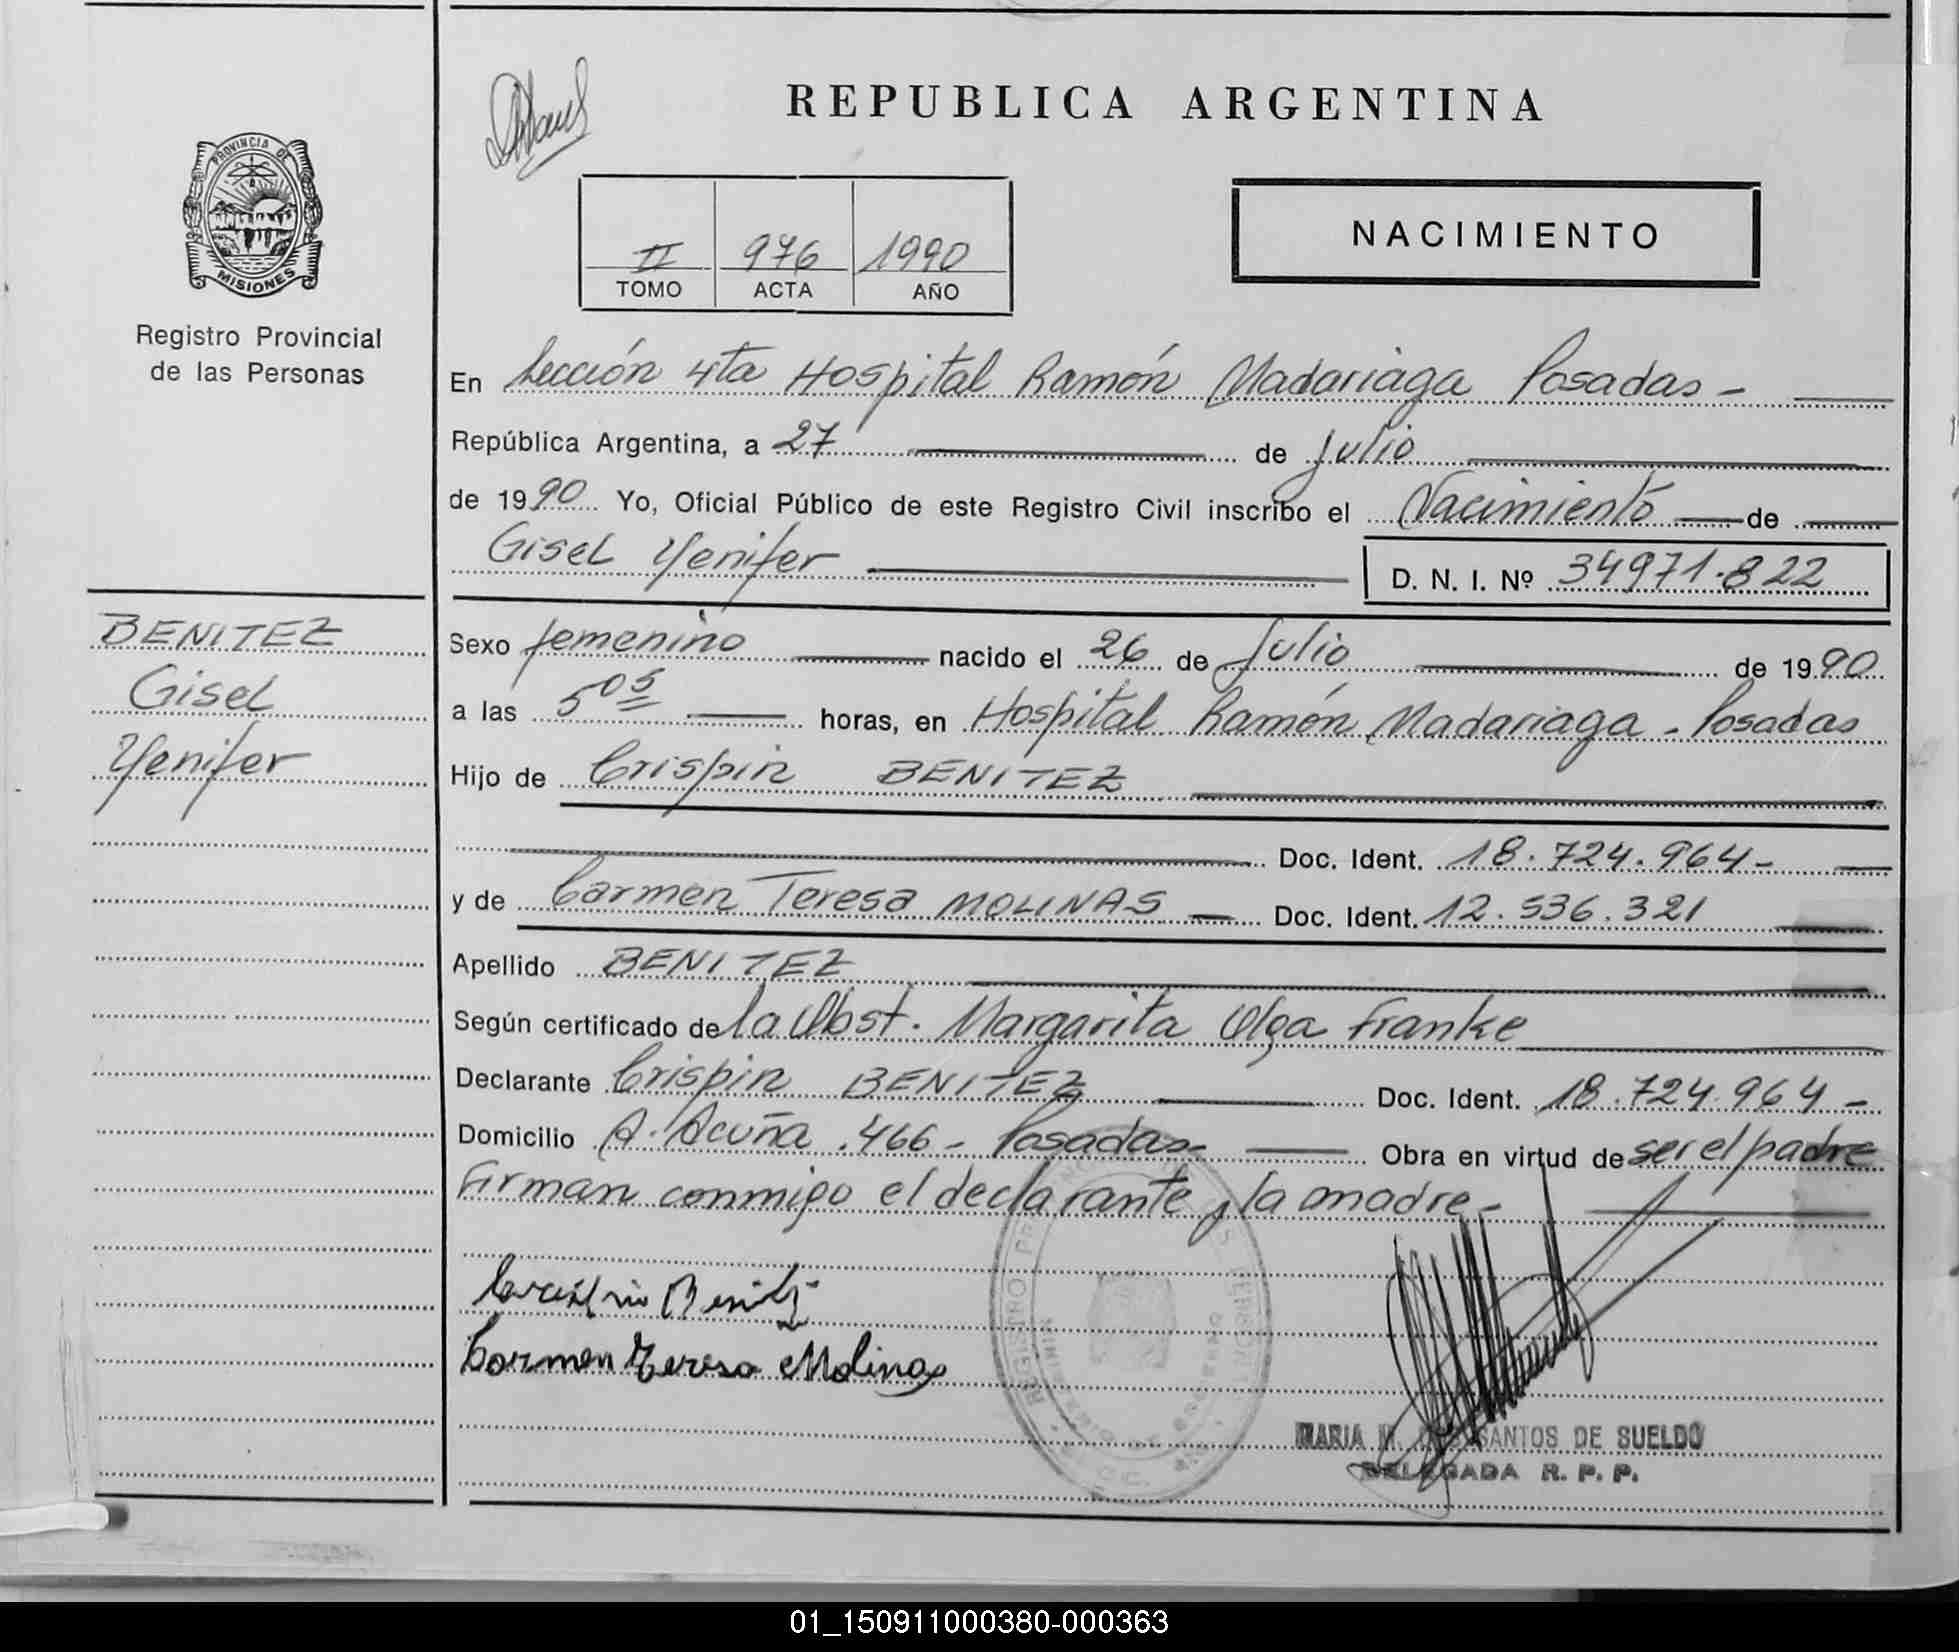 REPUBLICA ARGENTINA
PROVINCIA DE
MISIONES
Registro Provincial
de las Personas
II 976 1990
TOMO ACTA AÑO
NACIMIENTO
En Sección 4ta Hospital Ramón Madariaga Posadas -
República Argentina, a 27 de Julio
de 1990 Yo, Oficial Público de este Registro Civil inscribo el Nacimiento de
Gisel Yenifer
D. N. I. Nº 34971.822
BENITEZ
Gisel
Yenifer
Sexo femenino nacido el 26 de Julio de 1990
a las 5 05 horas, en Hospital Ramón Madariaga - Posadas
Hijo de Crispin BENITEZ
Doc. Ident. 18.724.964-
y de Carmen Teresa MOLINAS Doc. Ident. 12.536.321
Apellido BENITEZ
Según certificado de la Obst. Margarita Olga Franke
Declarante Crispin BENITEZ Doc. Ident. 18.724.964-
Domicilio A. Acuña 466 - Posadas- Obra en virtud de ser el padre
Firman conmigo el declarante y la madre-
Crispin Benitez
Carmen Teresa Molinas
REGISTRO
MARIA SANTOS DE SUELDO
DELEGADA R. P. P.
01_150911000380-000363